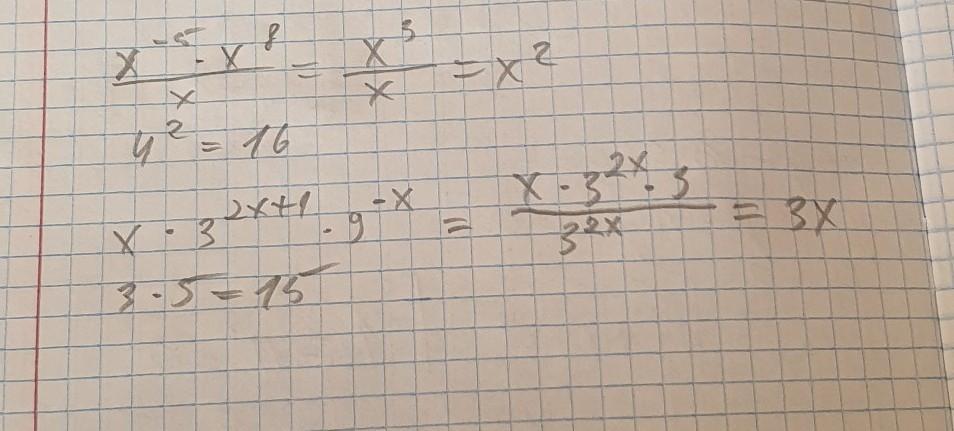 x⁻⁵ · x⁸ / x = x³ / x = x²
4² = 16
x · 3²ˣ⁺¹ · 9⁻ˣ = x · 3²ˣ · 3 / 3²ˣ = 3x
3 · 5 = 15